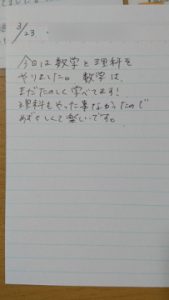 3/23
今日は数学と理科を
やりました。数学は、
まだたのしく学べてます!
理科もやった事なかったので
あたらしくて楽しいです。